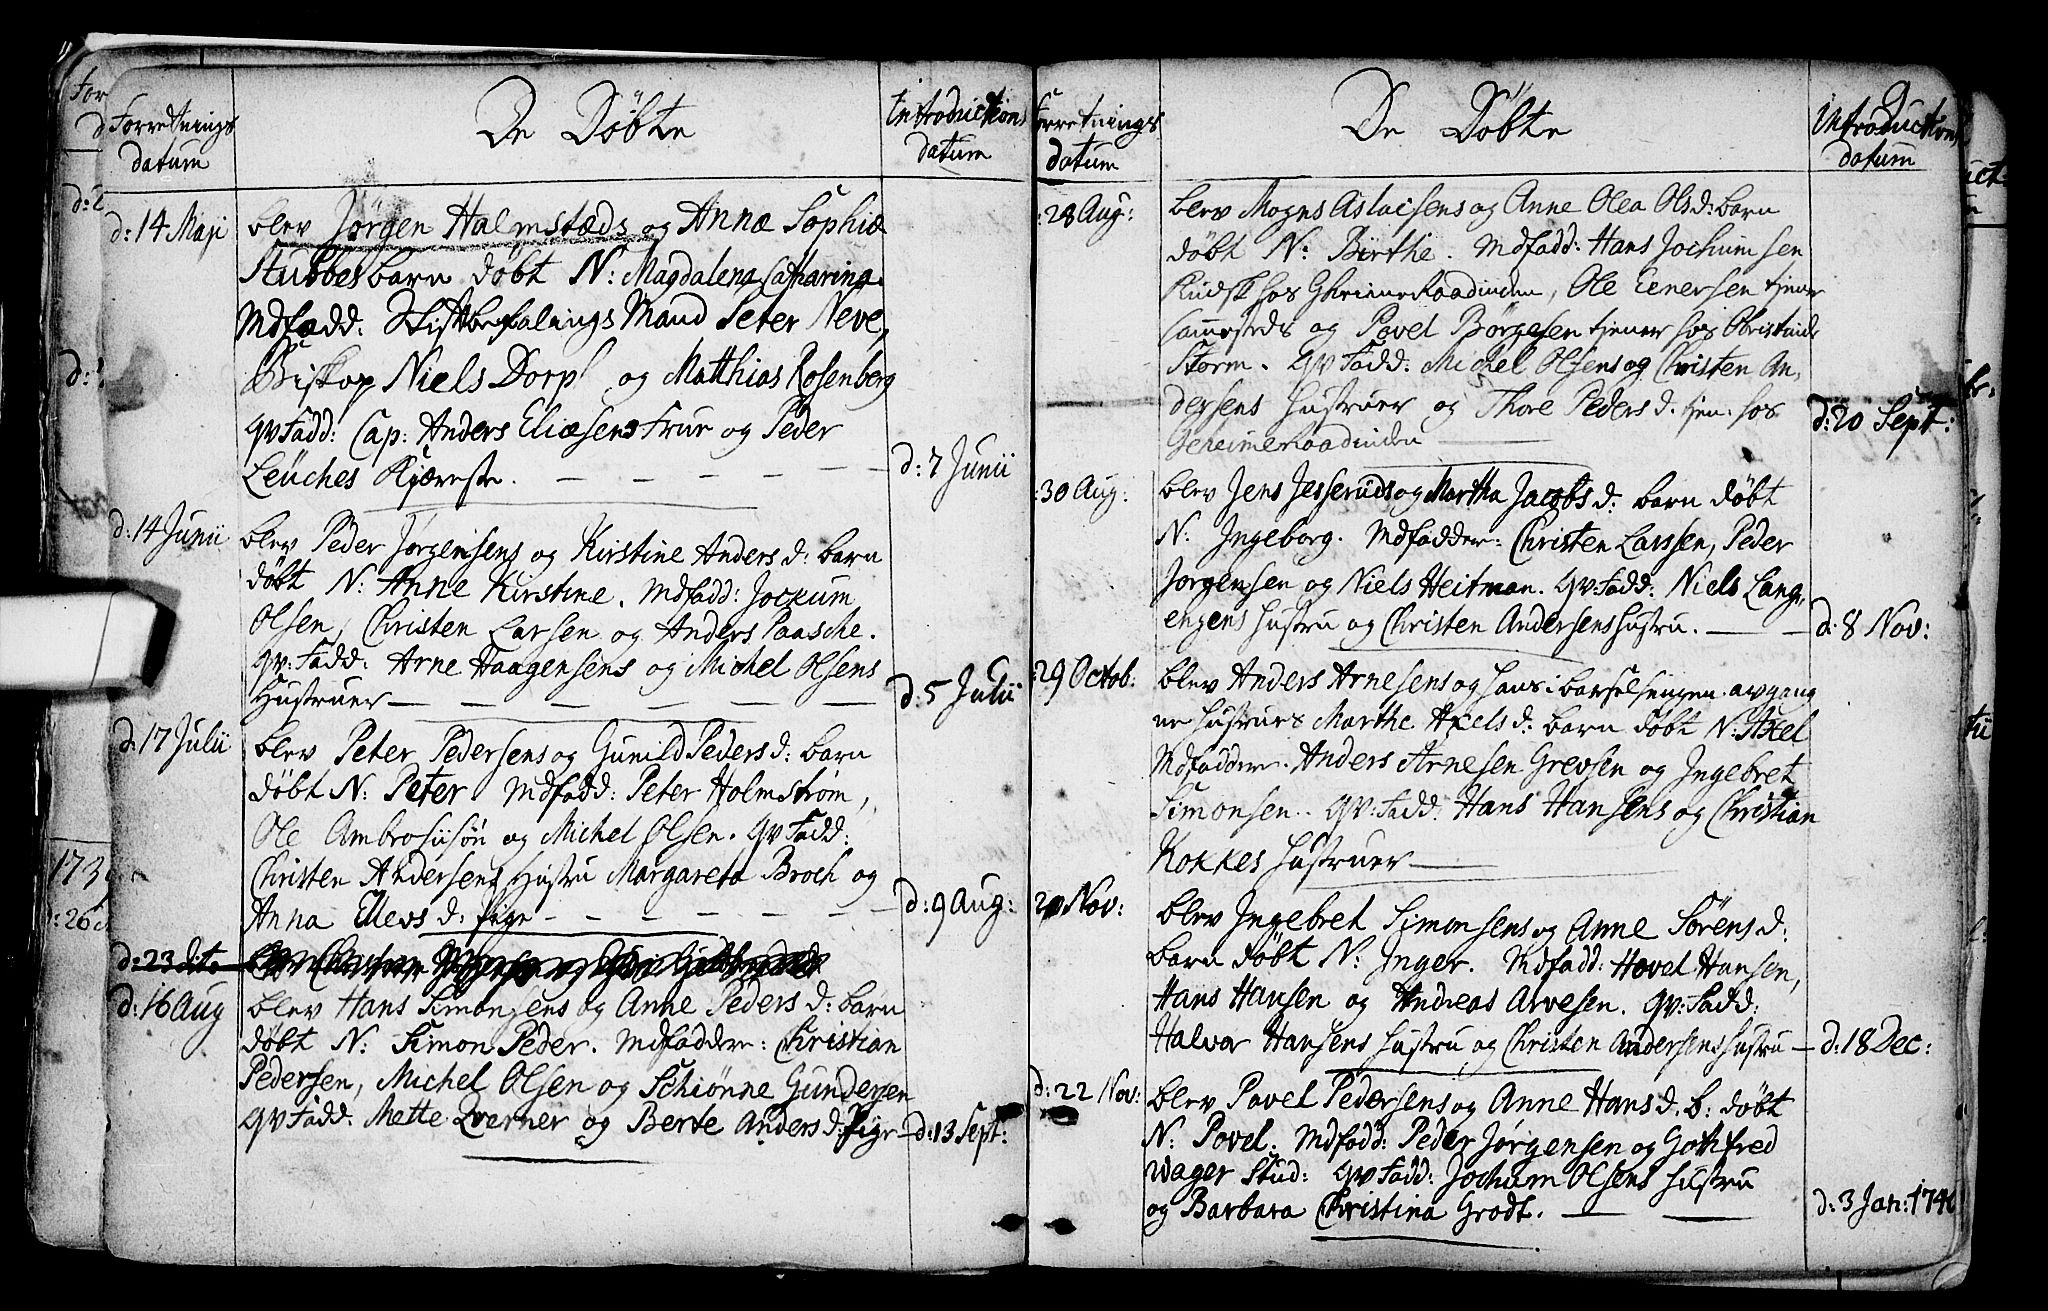 De Döbte
Forretnings datum
Introductions datum
d: 14 Maji
blev Jørgen Halmstæds og Anna Sophia
Stubbes barn döbt N: Magdalena Catharina.
Mdfadd: Stiftbefalings Mand Peter Neve,
Biskop Niels Dorph og Matthias Rosenberg
qvFadd: Cap: Anders Eliæsens Frue og Peder
Leüches Kjæreste. — — — — — d: 7 Junii
d: 14 Junii
blev Peder Jørgensens og Kirstine Andersd: barn
döbt N: Anne Kirstine. Mdfadd: Jockum
Olsen, Christen Larsen og Anders Paasche.
qv: Fadd: Arne Haagensens og Michel Olsens
Hustruer — — — — — — d: 5 Julii
d: 17 Julii
blev Peter Pedersens og Gunild Pedersd: barn
döbt N: Peter. Mdfadd: Peter Holmstrøm,
Ole Ambrosiisön og Michel Olsen. qvFadd:
Christen Andersens Hustru Margareta Broch og
Anna Ellevsd: pige — — — — — — d: 9 Aug:
d: 23 dito
d: 16 Aug
blev Hans Simonsens og Anne Pedersd: barn
döbt N: Simon Peder. Mdfaddere: Christian
Pedersen, Michel Olsen og Schiønne Gundersen
qvFadd: Mette Qverner og Berte Andersd: Pige — d: 13 Sept:
De Döbte
Forretnings datum
Introductions datum
9
28 Aug:
blev Mogns Aslacsens og Anne Olea Olsd: barn
döbt N: Birthe. Mdfadd: Hans Jochumsen
Kudsk hos GheimeRaadinden, Ole Eenersen tjener
sammesteds og Povel Börgesen tjener hos Christinde
Storm. qvFadd: Michel Olsens og Christen An,
dersens Hustruer og Thore Pedersd. tjen: hos
GeheimeRaadinden — d: 20 Sept:
30 Aug:
blev Jens Jesseruds og Martha Jacobsd: barn döbt
N: Ingeborg. Mdfaddere: Christen Larssen, Peder
Jørgensen og Niels Heitman. qv: Fadd: Niels Lang,
engens Hustru og Christen Andersens Hustru. — — d: 8 Nov:
29 Octob:
blev Anders Arnesens og hans i barselsengen avgang
ne Hustrues Marthe Axelsd: barn döbt N: Axel
Mdfaddere. Anders Arnesen Grevsen og Ingebret
Simonsen. qv: Fadd: Hans Hansens og Christian
Kokkes Hustruer —
20 Nov:
blev Ingebret Simonsens og Anne Sörensd:
barn döbt N: Inger. Mdfadd: Hovel Hansen,
Hans Hansen og Andreas Arvesen. qv: Fadd:
Halvor Hansens Hustru og Christen Andersens Hustru — d: 18 Dec:
d: 22 Nov:
blev Povel Pedersens og Anne Hansd. b: döbt
N: Povel. Mdfadd: Peder Jørgensen og Gottfred
Wager Stud: qvFadd: Jochum Olsens Hustru
og Barbara Christina Grodt. — — d: 3 Jan: 1740
1739